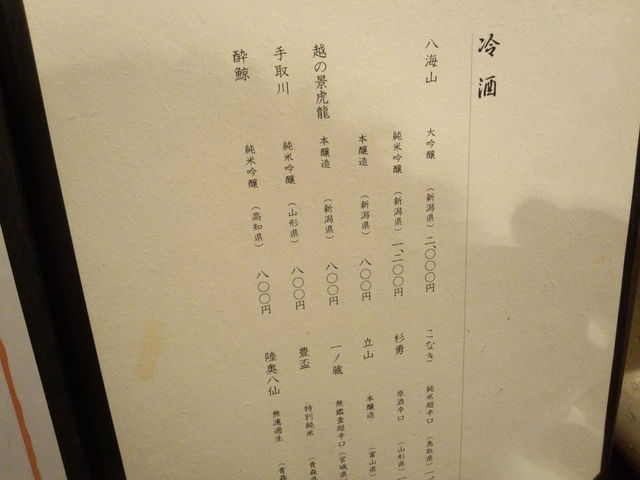 冷酒
八海山 大吟醸 （新潟県） 二、〇〇〇円
純米吟醸 （新潟県） 一、二〇〇円
本醸造 （新潟県） 八〇〇円
越の景虎龍 本醸造 （新潟県） 八〇〇円
手取川 純米吟醸 （山形県） 八〇〇円
酔鯨 純米吟醸 （高知県） 八〇〇円
こなき 純米超辛口 （鳥取県） 一、
杉勇 原酒辛口 （山形県）
立山 本醸造 （富山県）
一ノ蔵 無鑑査超辛口 （宮城県
豊盃 特別純米 （青森県
陸奥八仙 無濾過生 （青森